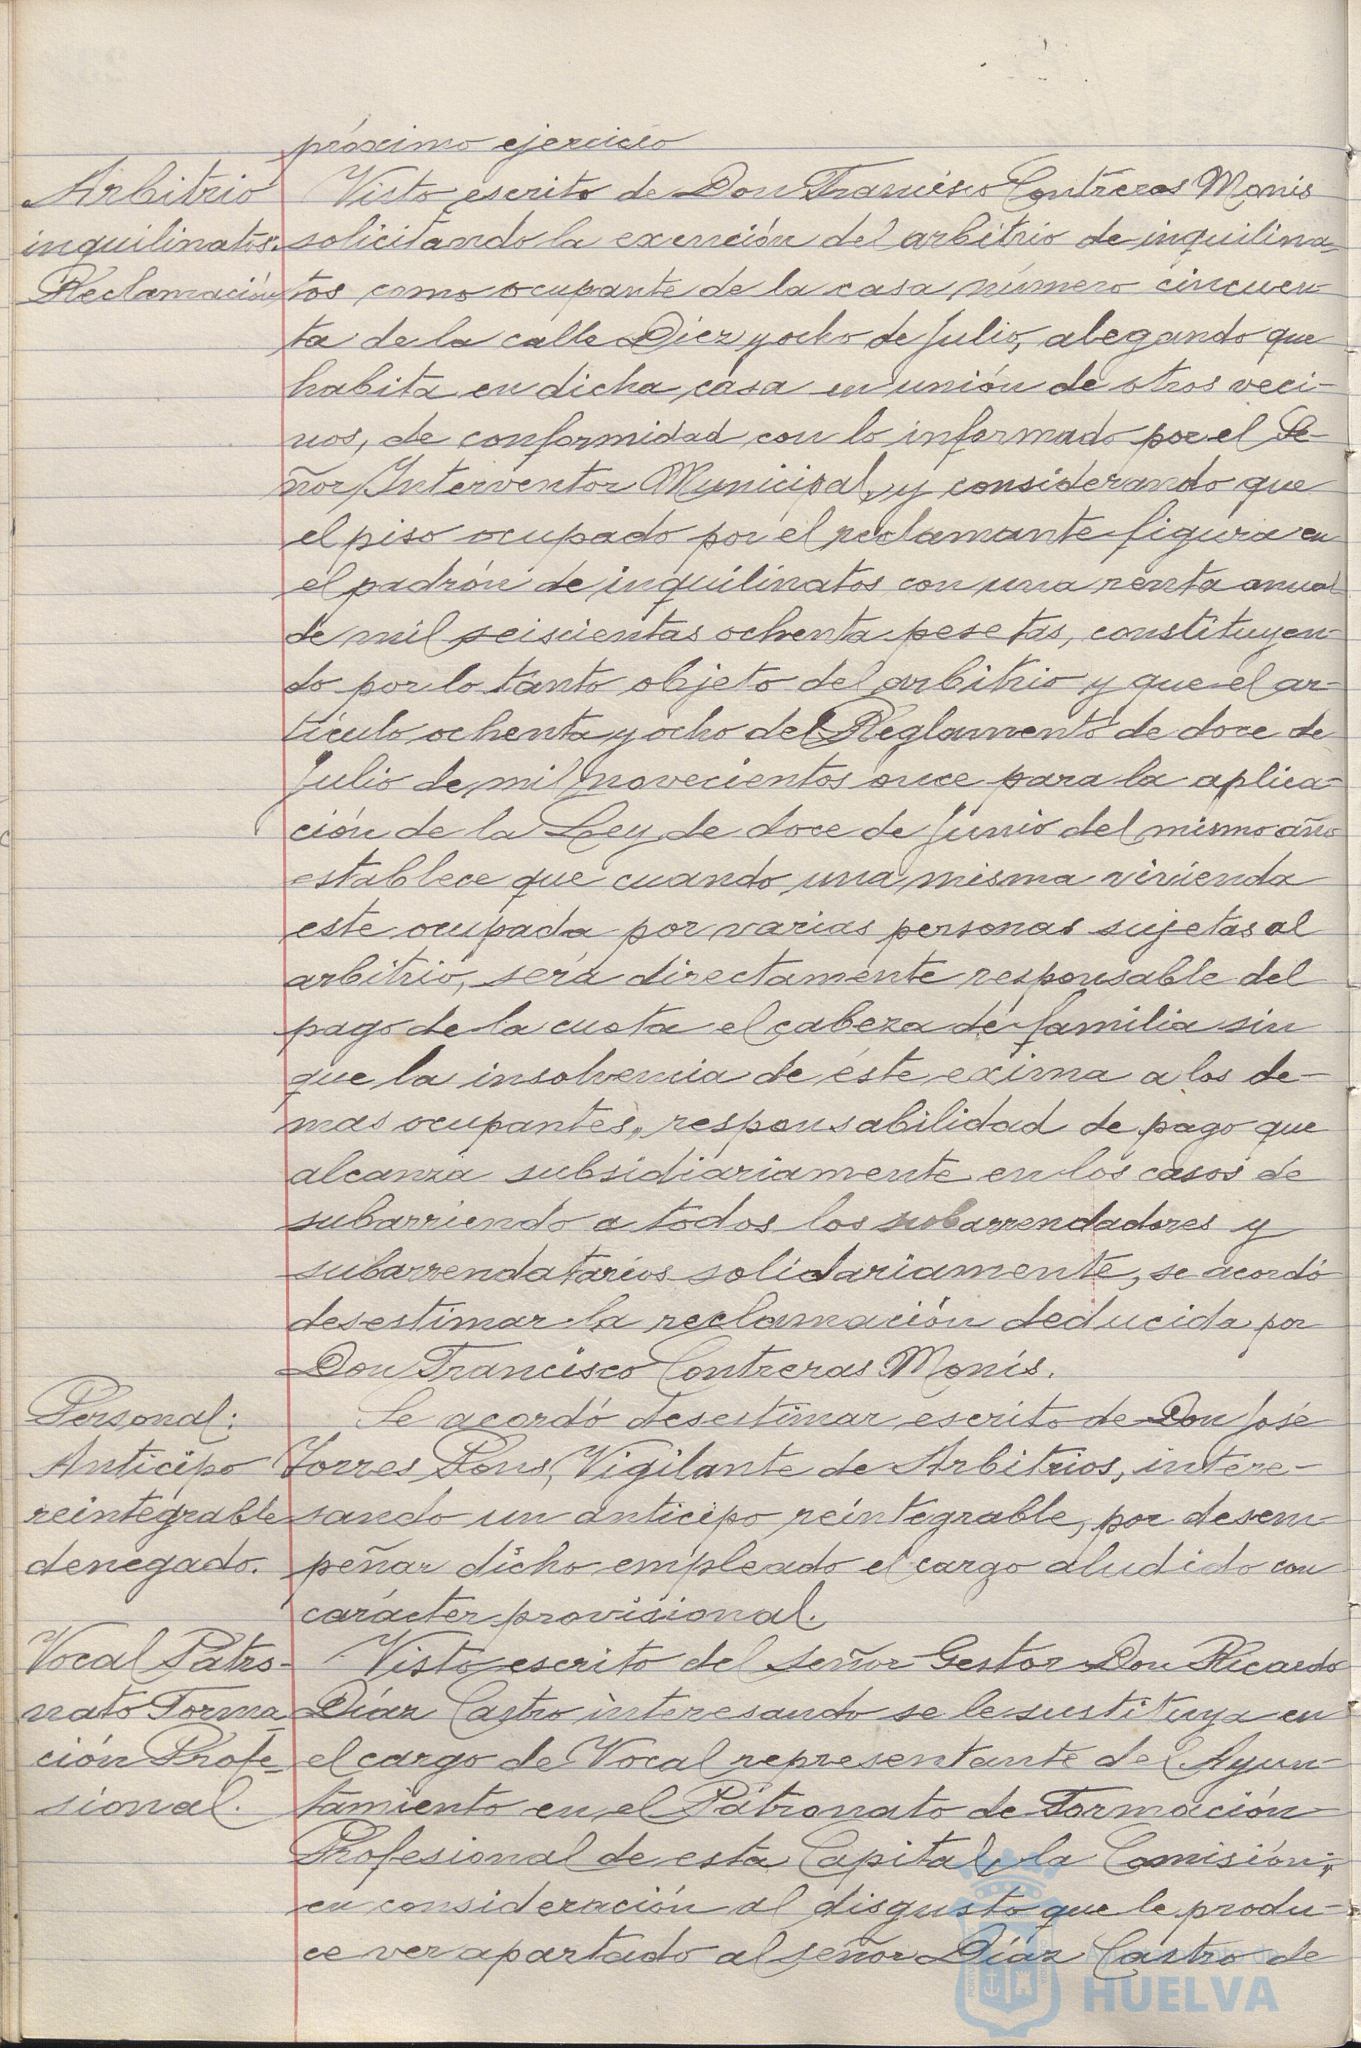 próximo ejercicio
Arbitrio inquilinatos. Reclamación
Visto escrito de Don Francisco Contreras Monis
solicitando la exención del arbitrio de inquilina-
tos como ocupante de la casa número cincuen-
ta de la calle Diez y ocho de Julio, alegando que
habita en dicha casa en unión de otros veci-
nos, de conformidad con lo informado por el Se-
ñor Interventor Municipal, y considerando que
el piso ocupado por el reclamante figura en
el padrón de inquilinatos con una renta anual
de mil seiscientas ochenta pesetas, constituyen-
do por lo tanto objeto del arbitrio y que el ar-
tículo ochenta y ocho del Reglamento de doce de
Julio de mil novecientos once para la aplica-
ción de la Ley de doce de Junio del mismo año
establece que cuando una misma vivienda
este ocupada por varias personas sujetas al
arbitrio, será directamente responsable del
pago de la cuota el cabeza de familia sin
que la insolvencia de éste exima a los de-
mas ocupantes, responsabilidad de pago que
alcanza subsidiariamente en los casos de
subarriendo a todos los subarrendadores y
subarrendatarios solidariamente, se acordó
desestimar la reclamación deducida por
Don Francisco Contreras Monís.
Personal:
Anticipo
reintegrable
denegado.
Se acordó desestimar escrito de Don José
Torres Pons, Vigilante de Arbitrios, intere-
sando un anticipo reintegrable, por desem-
peñar dicho empleado el cargo aludido con
carácter provisional.
Vocal Patro-
nato Forma-
ción Profe-
sional.
Visto escrito del Señor Gestor Don Ricardo
Díaz Castro interesando se le sustituya en
el cargo de Vocal representante del Ayun-
tamiento en el Patronato de Formación
Profesional de esta Capital, la Comisión,
en consideración al disgusto que le produ-
ce ver apartado al señor Díaz Castro de
Ayuntamiento de
HUELVA